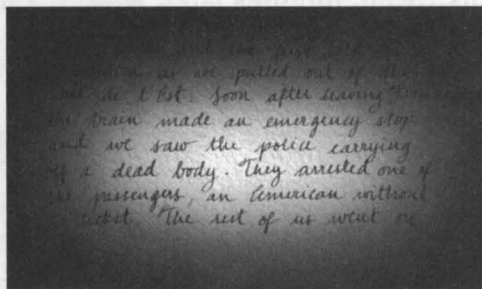 and the
as we pulled out of
de l'Est. Soon after leaving
the train made an emergency stop
and we saw the police carrying
off a dead body. They arrested one of
the passengers, an American without
ticket. The rest of us went on